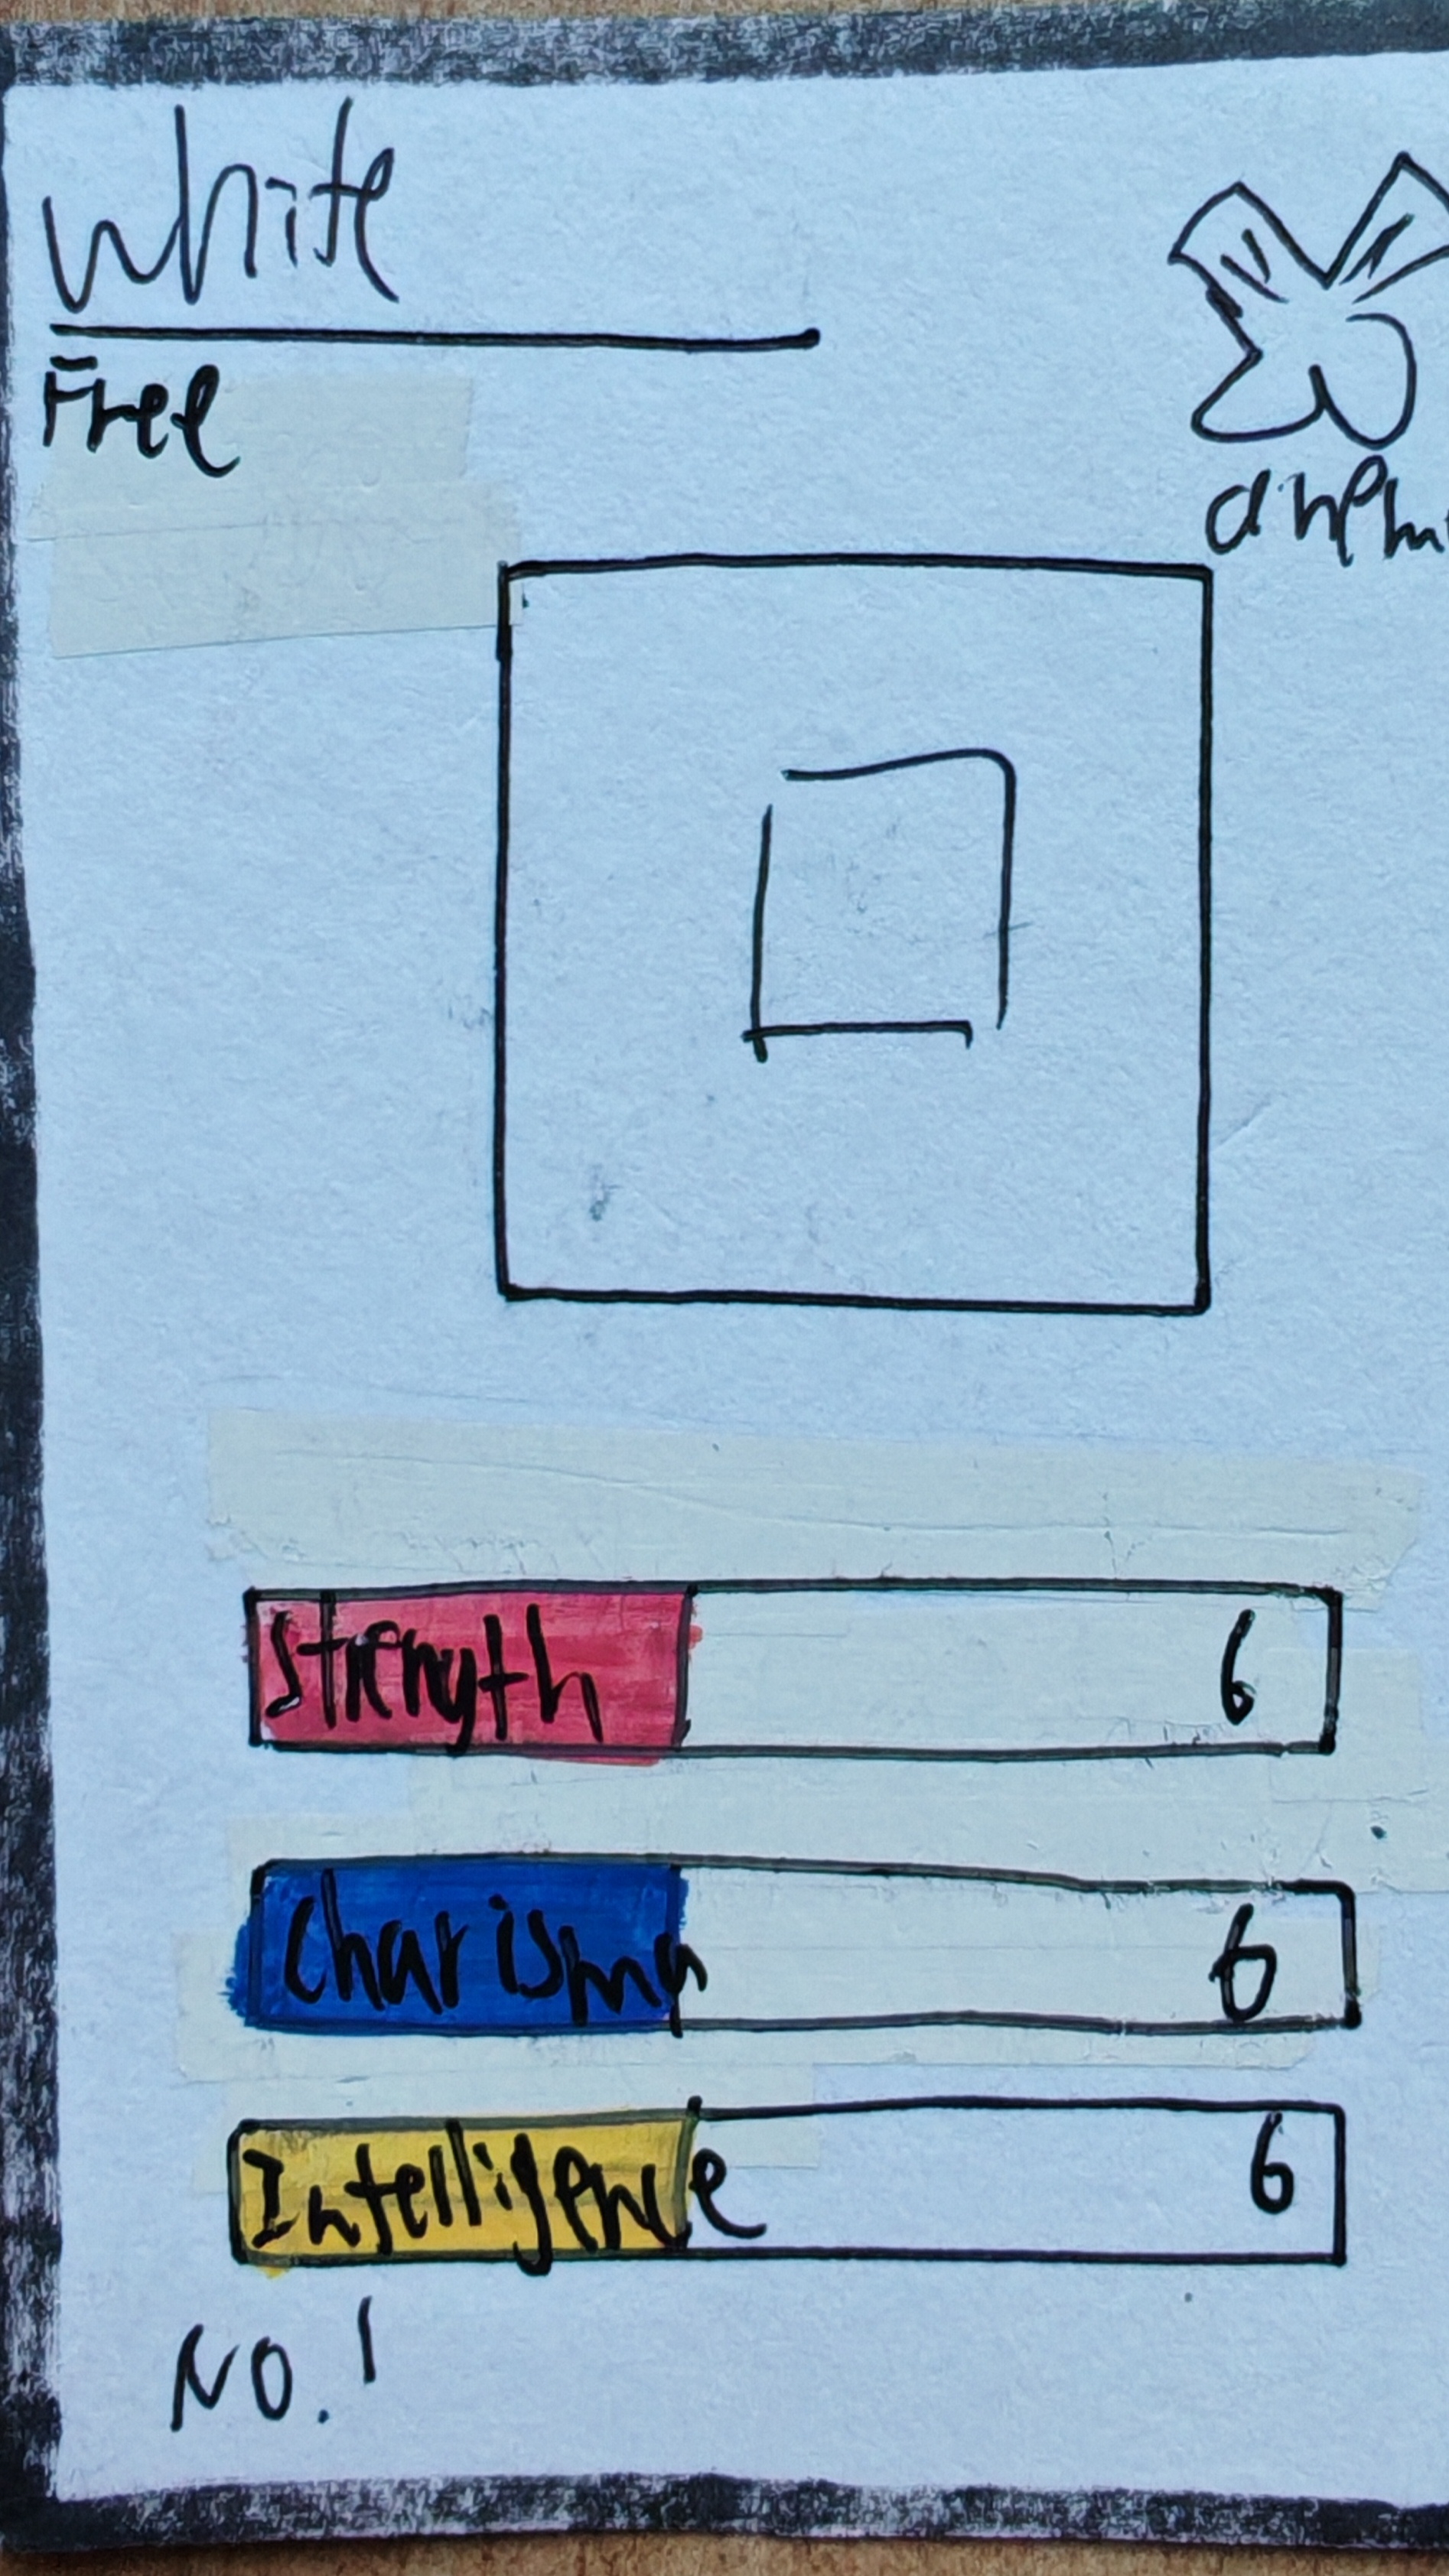 White
Free
Strength 6
Charisma 6
Intelligence 6
No.1